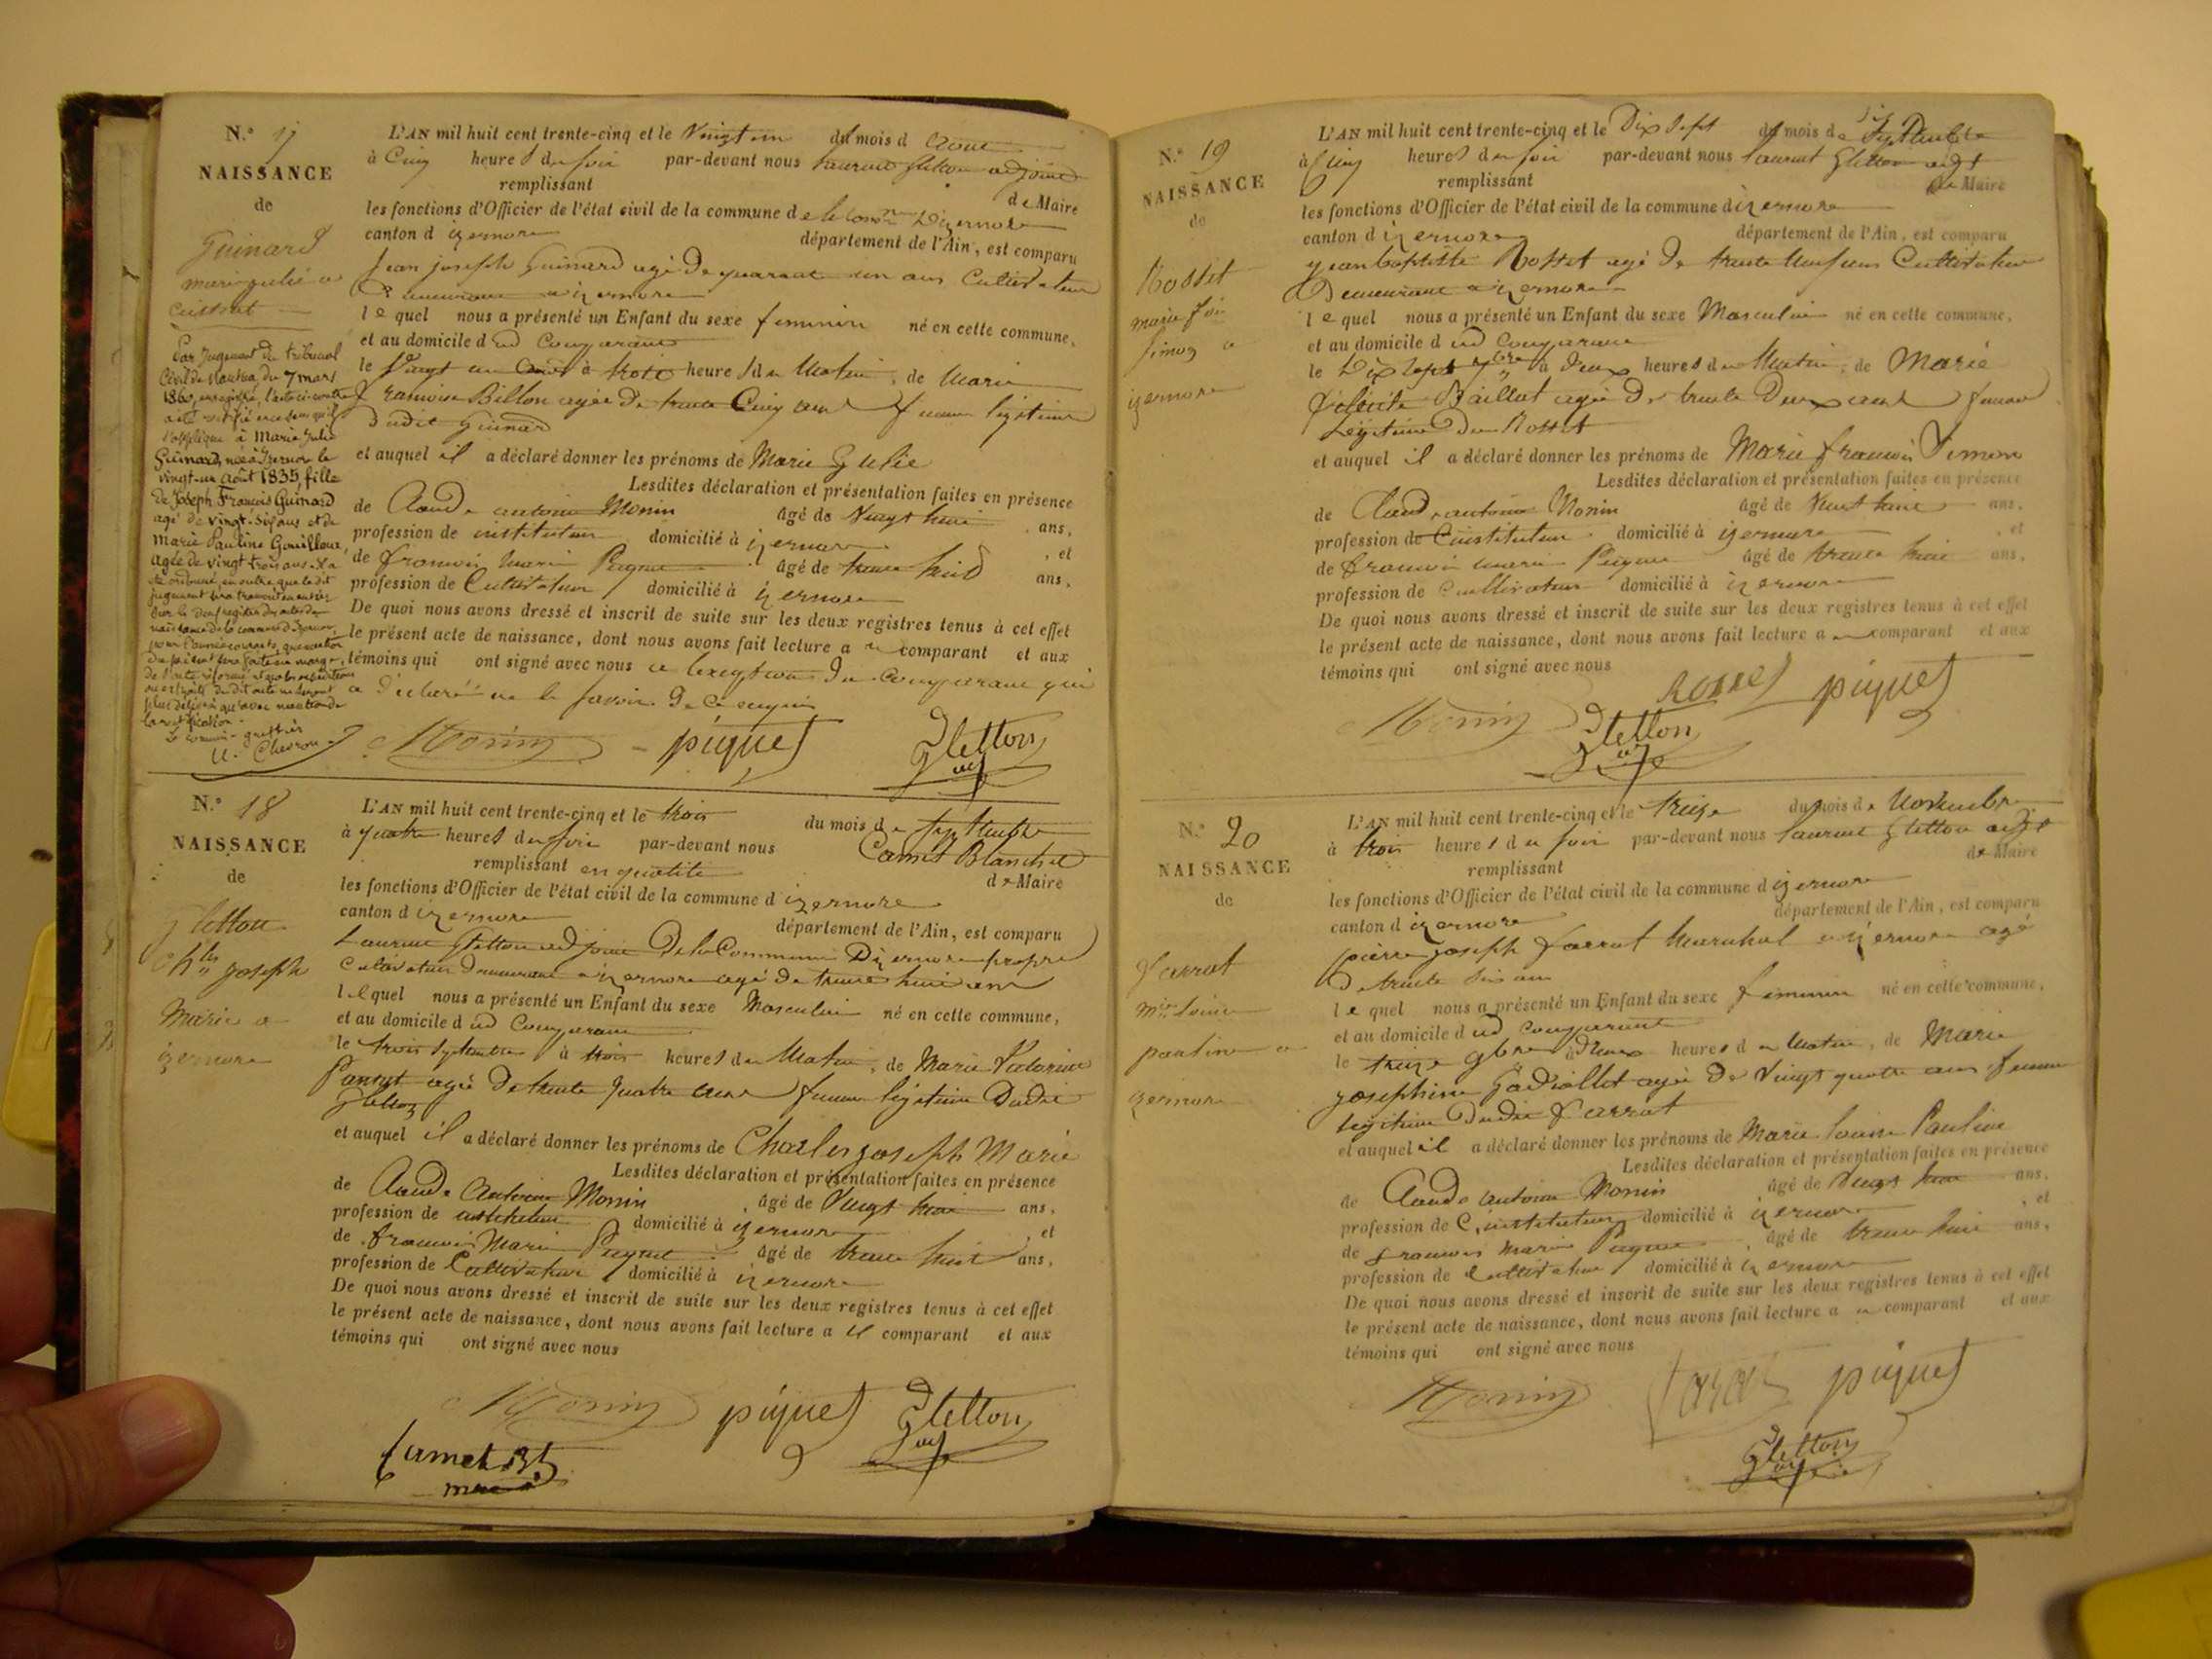 N.° 17
NAISSANCE
de
Guinard
marie julie a
Par jugement du tribunal
civil de Nantua, du 7 mars
1860, enregistré, l'acte ci-contre
a été rectifié en ce sens qu'il
s'applique à Marie Julie
Guinard, née à Izernore le
vingt-un août 1835, fille
de Joseph François Guinard
agé de vingt-six ans et de
Marie Pauline Gouilloux,
agée de vingt trois ans. Il a
été ordonné en outre que le dit
jugement sera transcrit en entier
sur le registre des actes de
naissance de la commune d'Izernore
pour l'année courante, que mention
du présent sera faite en marge
de l'acte réformé et que les expéditions
ou extraits du dit acte ne seront
plus délivrés qu'avec mention de
la rectification.
Le commis-greffier
U. Chevron
L'AN mil huit cent trente-cinq et le Vingt un du mois d Aout
à Cinq heures du soir par-devant nous Laurent Gletton adjoint
remplissant de Maire
les fonctions d'Officier de l'état civil de la commune de Dizernore
canton d izernore département de l'Ain, est comparu
Jean joseph Guinard agé de quarante un ans Cultivateur
Demeurant a izernore
lequel nous a présenté un Enfant du sexe feminin né en cette commune,
et au domicile d ud Comparant
le Vingt un Aout à trois heures du Matin, de Marie
françoise Billon agée de trente Cinq ans femme legitime
dudit Guinard
et auquel il a déclaré donner les prénoms de Marie Julie
Lesdites déclaration et présentation faites en présence
de Claude antoine Monin âgé de Vingt huit ans,
profession de instituteur domicilié à izernore, et
de françois Marie Piquet âgé de trente huit ans,
profession de Cultivateur domicilié à izernore
De quoi nous avons dressé et inscrit de suite sur les deux registres tenus à cet effet
le présent acte de naissance, dont nous avons fait lecture a u comparant et aux
témoins qui ont signé avec nous a lexeption du Comparant qui
a déclaré ne le savoir de ce enquis
Monin piquet Gletton
adj
N.° 18
NAISSANCE
de
Gletton
Ch.les joseph
Marie a
izernore
L'AN mil huit cent trente-cinq et le trois du mois de Septembre
à quatre heures du soir par-devant nous Camet Blanchet
remplissant en qualité de Maire
les fonctions d'Officier de l'état civil de la commune d izernore
canton d izernore département de l'Ain, est comparu
Laurent Gletton adjoint De la Commune Dizernore propre
Cultivateur Demeurant a izernore agé de trente huit ans
lequel nous a présenté un Enfant du sexe Masculin né en cette commune,
et au domicile d ud Comparant
le trois Septembre à trois heures du Matin, de Marie Victorine
Pansut agé De trente quatre ans femme legitime Dudit
Gletton
et auquel il a déclaré donner les prénoms de Charles joseph Marie
Lesdites déclaration et présentation faites en présence
de Claude Antoine Monin, âgé de Vingt huit ans,
profession de instituteur domicilié à izernore, et
de françois Marie Piquet âgé de trente huit ans,
profession de Cultivateur domicilié à izernore
De quoi nous avons dressé et inscrit de suite sur les deux registres tenus à cet effet
le présent acte de naissance, dont nous avons fait lecture a il comparant et aux
témoins qui ont signé avec nous
Monin piquet Gletton
adj
Camet Bt
maire
N.° 19
NAISSANCE
de
Rosset
marie fois
simon a
izernore
L'AN mil huit cent trente-cinq et le Dix Sept du mois de Septembre
à Cinq heures du soir par-devant nous Laurent Gletton adjt
remplissant de Maire
les fonctions d'Officier de l'état civil de la commune d izernore
canton d izernore département de l'Ain, est comparu
jean baptiste Rosset agé de trente neuf ans Cultivateur
Demeurant a izernore
lequel nous a présenté un Enfant du sexe Masculin né en cette commune,
et au domicile d ud Comparant
le Dix Sept 7bre à Deux heures du Matin, de Marie
felicité Baillat agée De trente Deux ans femme
Legitime Du Rosset
et auquel il a déclaré donner les prénoms de Marie françois Simon
Lesdites déclaration et présentation faites en présence
de Claude antoine Monin âgé de Vingt huit ans,
profession de instituteur domicilié à izernore, et
de françois marie Piquet âgé de trente huit ans,
profession de Cultivateur domicilié à izernore
De quoi nous avons dressé et inscrit de suite sur les deux registres tenus à cet effet
le présent acte de naissance, dont nous avons fait lecture a u comparant et aux
témoins qui ont signé avec nous
Rosset piquet
Monin Gletton
adj
N.° 20
NAISSANCE
de
farrat
M.ie Louise
pauline a
izernore
L'AN mil huit cent trente-cinq et le treize du mois de Novembre
à trois heures du soir par-devant nous Laurent Gletton adjt
remplissant de Maire
les fonctions d'Officier de l'état civil de la commune d izernore
canton d izernore département de l'Ain, est comparu
pierre joseph farrat Marechal a izernore agé
De trente six ans
lequel nous a présenté un Enfant du sexe feminin né en cette commune,
et au domicile d ud Comparant
le treize 9bre à Deux heures du Matin, de Marie
josephine Gadiollet agée De Vingt quatre ans femme
legitime Dudit farrat
et auquel il a déclaré donner les prénoms de Marie Louise Pauline
Lesdites déclaration et présentation faites en présence
de Claude antoine Monin âgé de Vingt huit ans,
profession de instituteur domicilié à izernore, et
de françois Marie Piquet, âgé de trente huit ans,
profession de Cultivateur domicilié à izernore
De quoi nous avons dressé et inscrit de suite sur les deux registres tenus à cet effet
le présent acte de naissance, dont nous avons fait lecture a u comparant et aux
témoins qui ont signé avec nous
Monin farat piquet
Gletton
adj